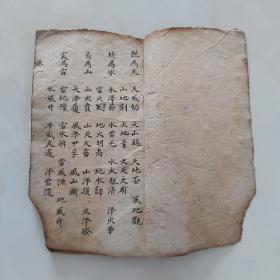 乾為天 天風姤 天山遯 天地否 風地觀
山地剝 火地晋 火天大有
坎為水 水澤節 水雷屯 水火既濟 澤火革
雷火豐 地火明夷 地水師
艮為山 山火賁 山天大畜 山澤損 火澤睽
天澤履 風澤中孚 風山漸
震為雷 雷地豫 雷水解 雷風恒 地風升
水風井 澤風大過 澤雷隨